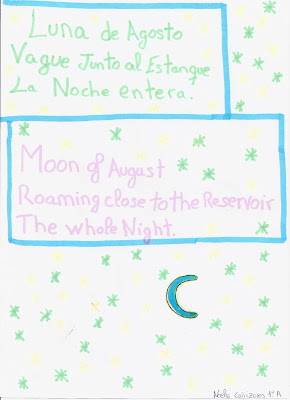 Luna de Agosto
Vague Junto al Estanque
La Noche entera.
Moon of August
Roaming close to the Reservoir
The whole Night.
1º A